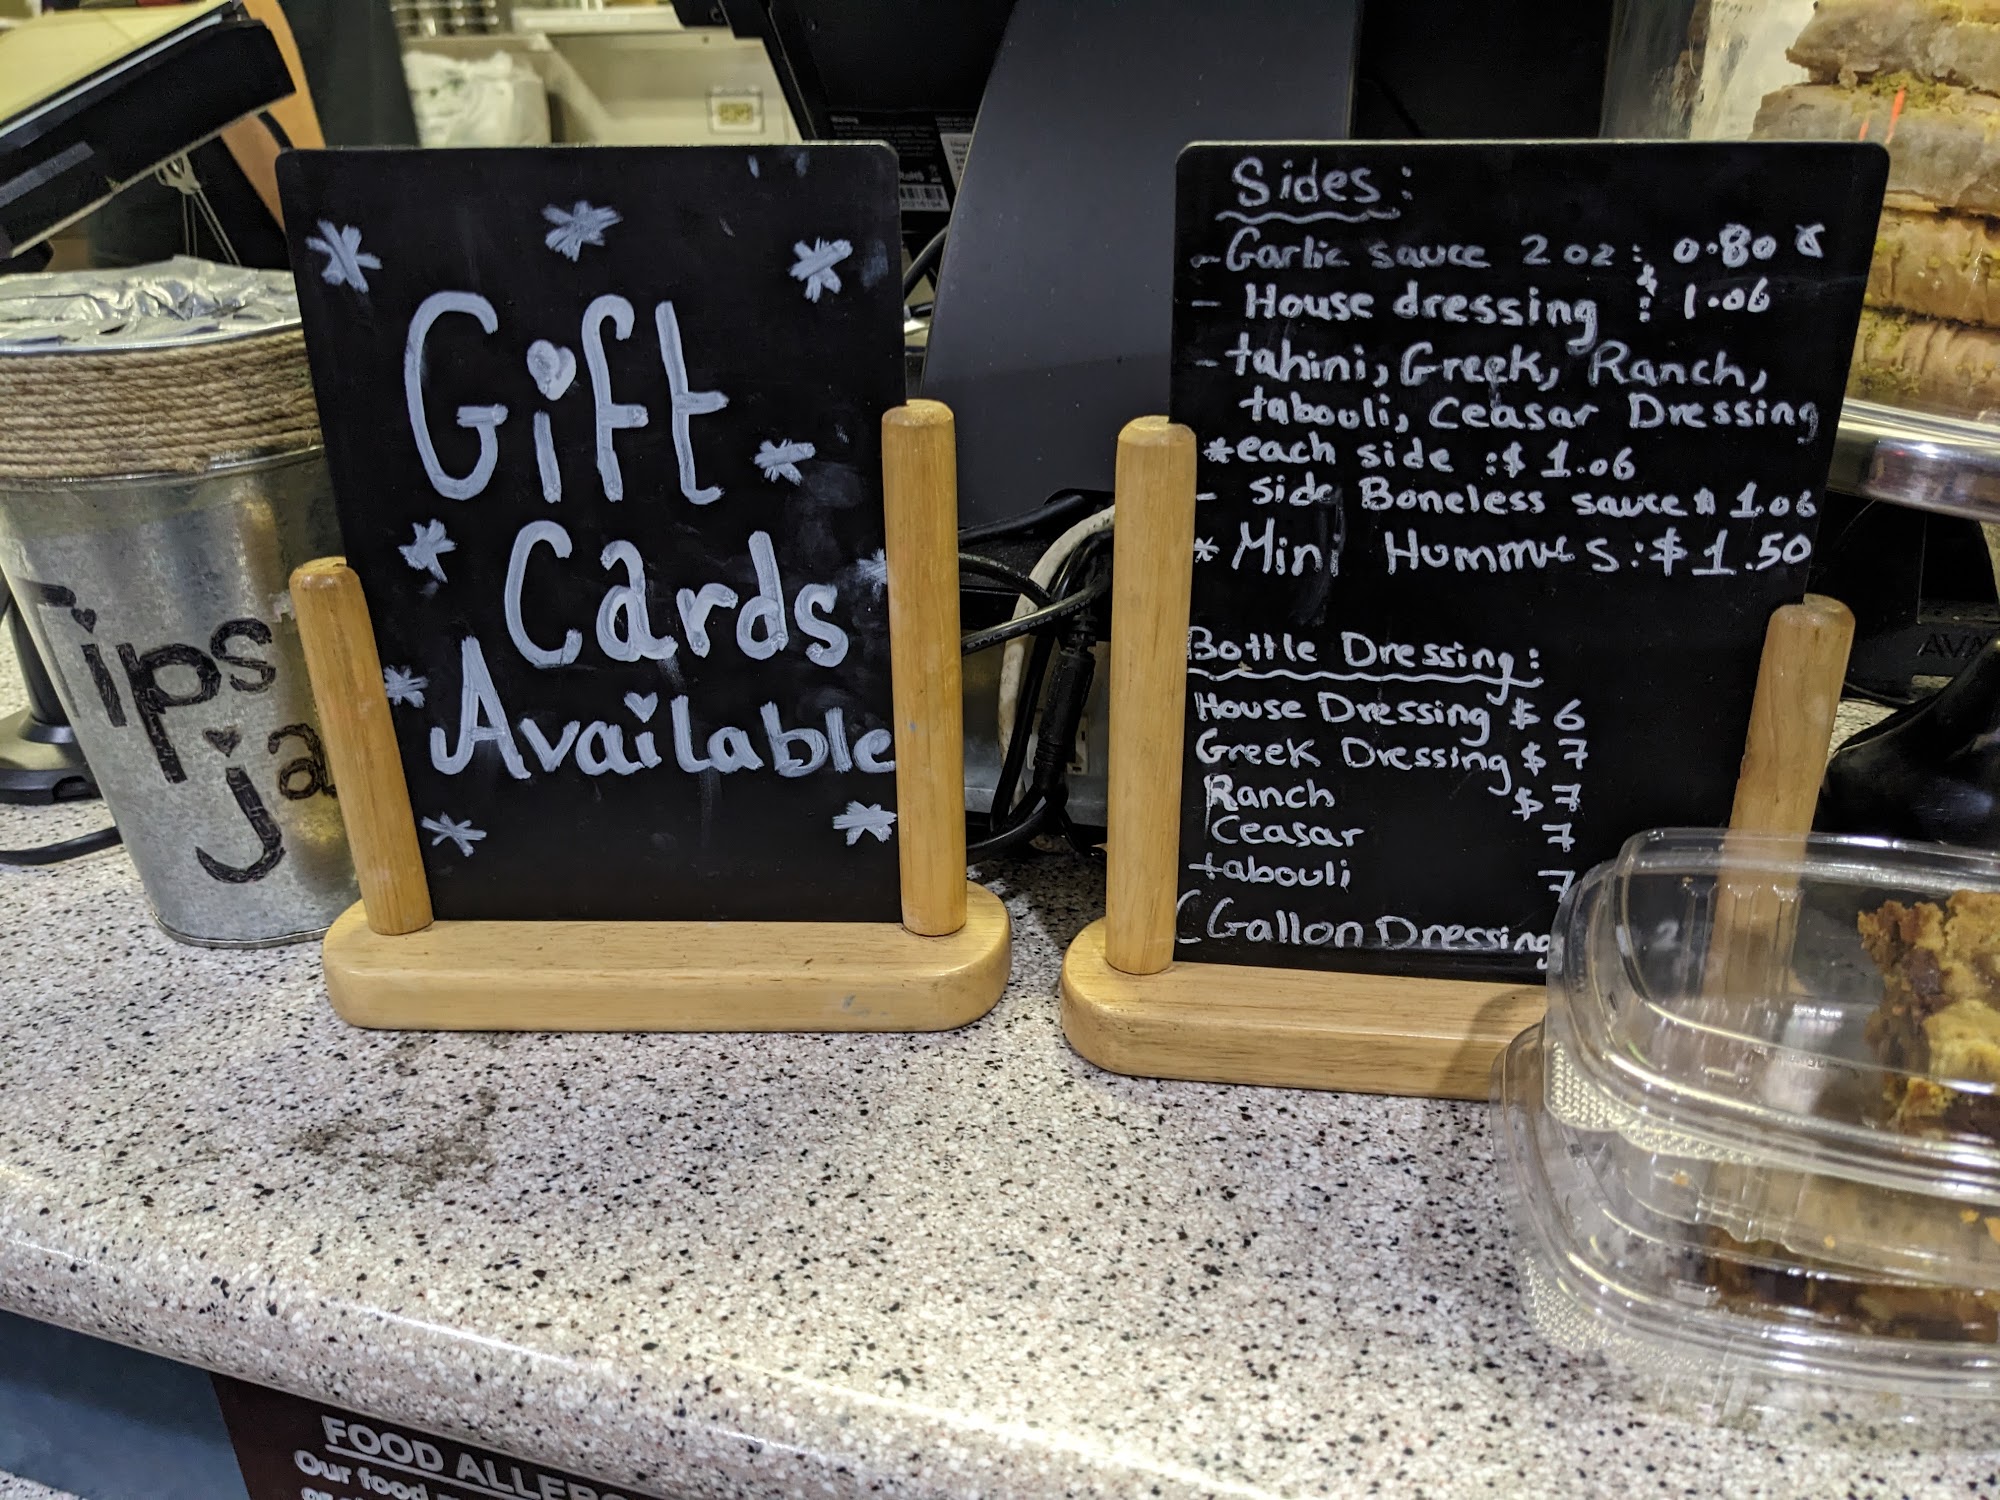 Gift
Cards
Available
Tips
ja
Sides:
- Garlic sauce 2 oz: 0.80 ¢
- House dressing : $ 1.06
- tahini, Greek, Ranch,
tabouli, Ceasar Dressing
*each side :$ 1.06
- side Boneless sauce $ 1.06
* Mini Hummus :$ 1.50
Bottle Dressing:
House Dressing $ 6
Greek Dressing $ 7
Ranch $ 7
Ceasar 7
tabouli 7
(Gallon Dressing
Warning
RoHS
FOOD ALLER
Our food